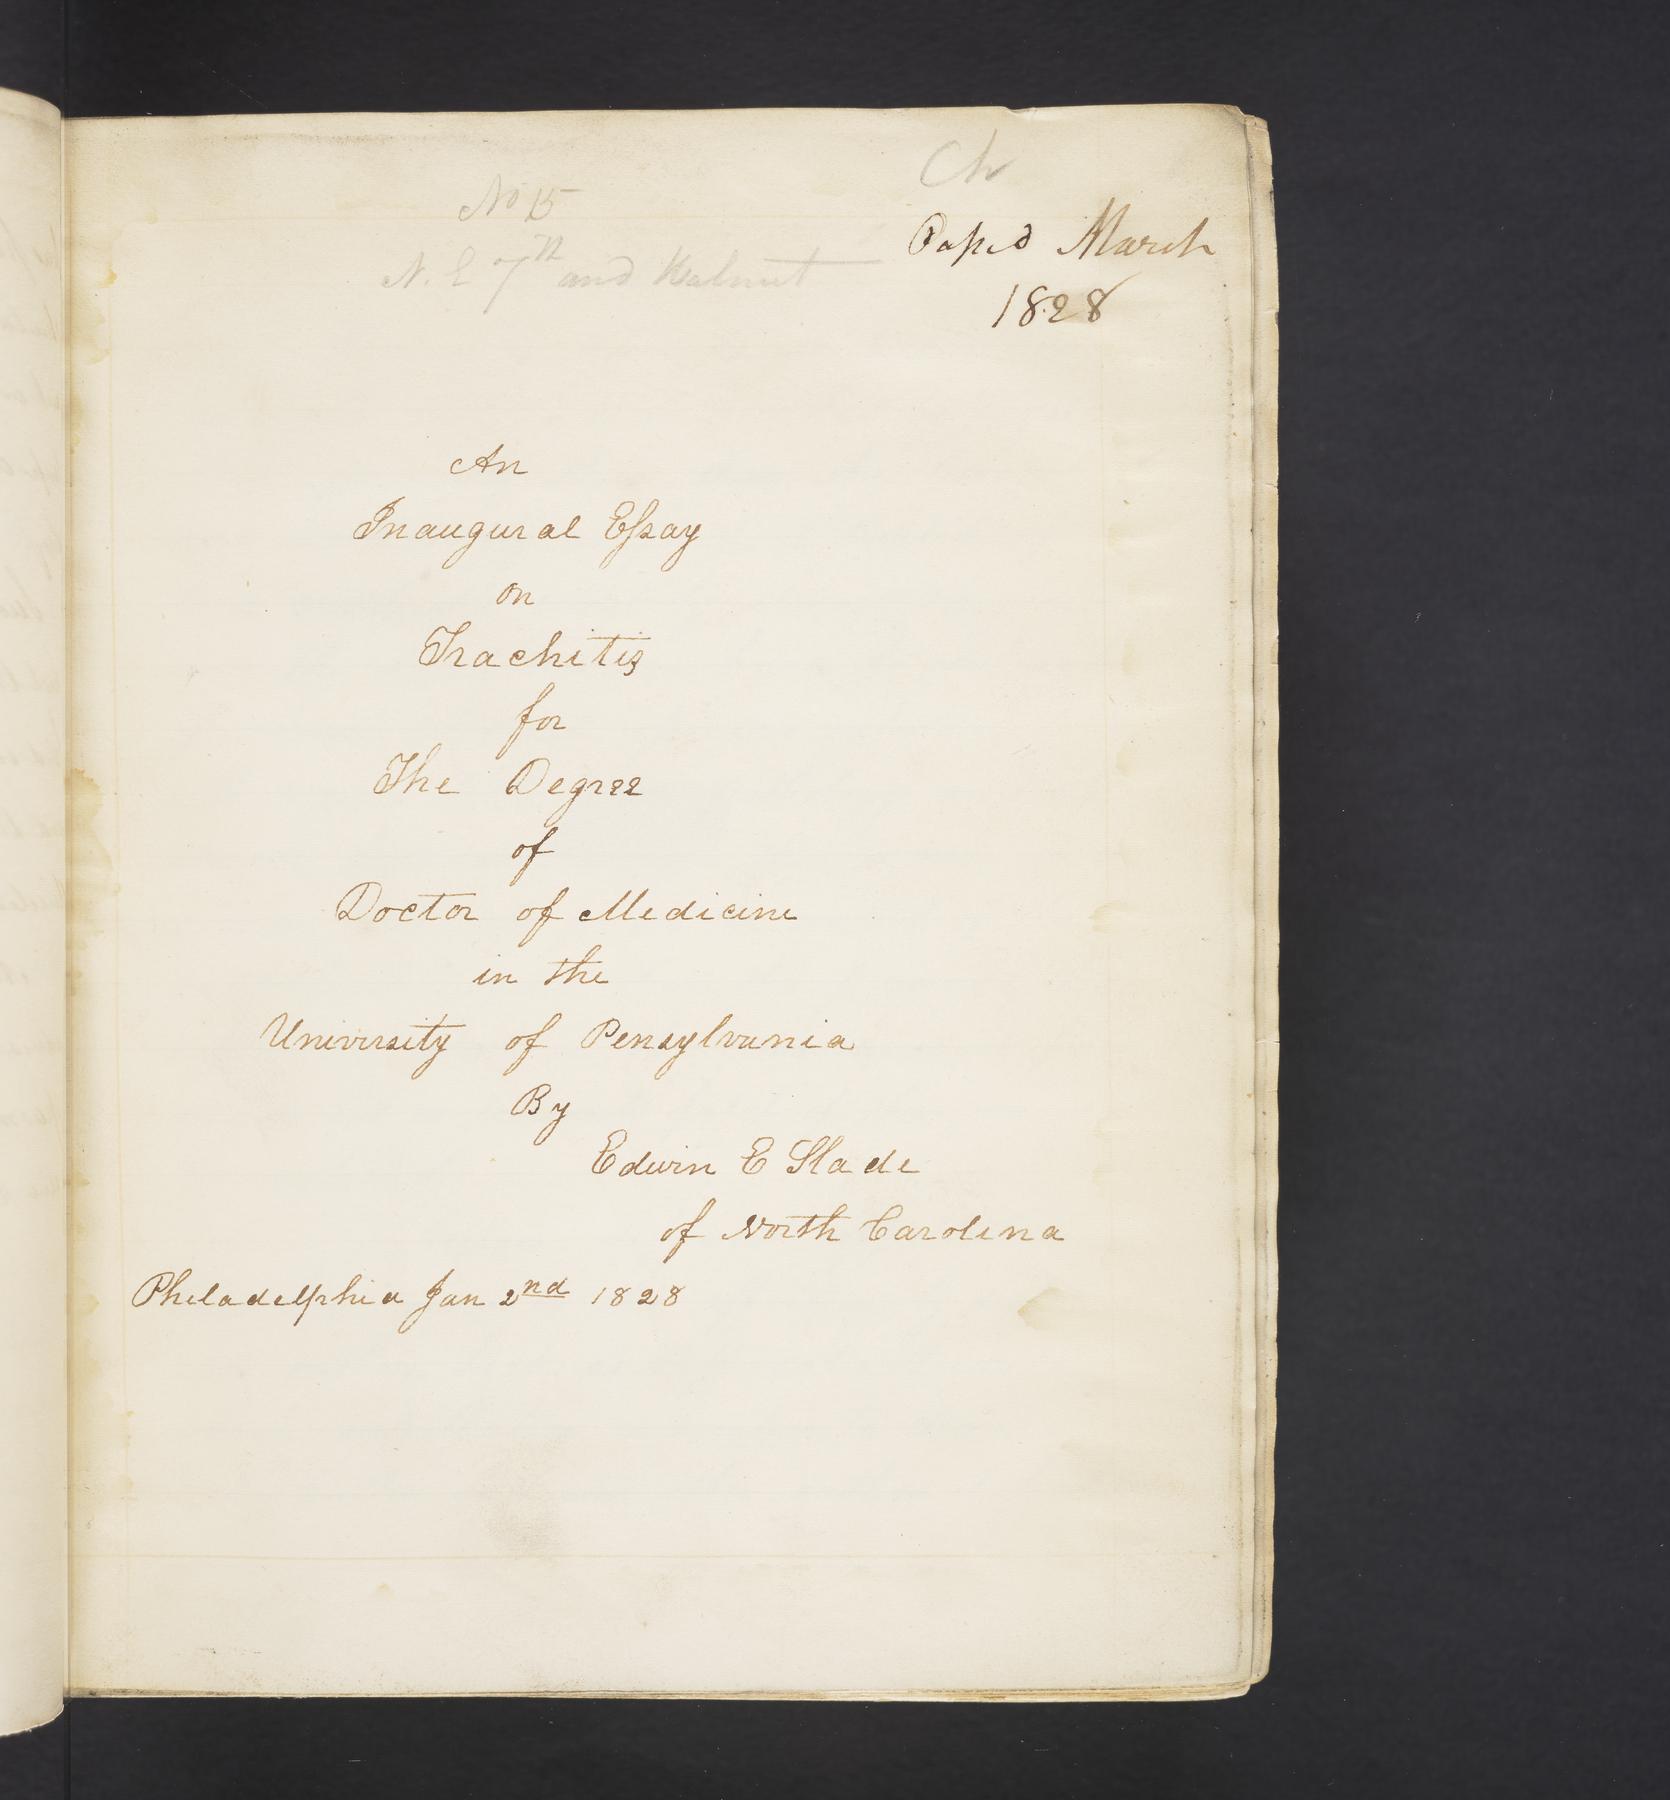 Ch
No 15
Passed March
N. E 7th and Walnut
1828
An
Inaugural Essay
on
Trachitis
for
The Degree
of
Doctor of Medicine
in the
University of Pensylvania
By
Edwin E Slade
of North Carolina
Philadelphia Jan 2nd 1828